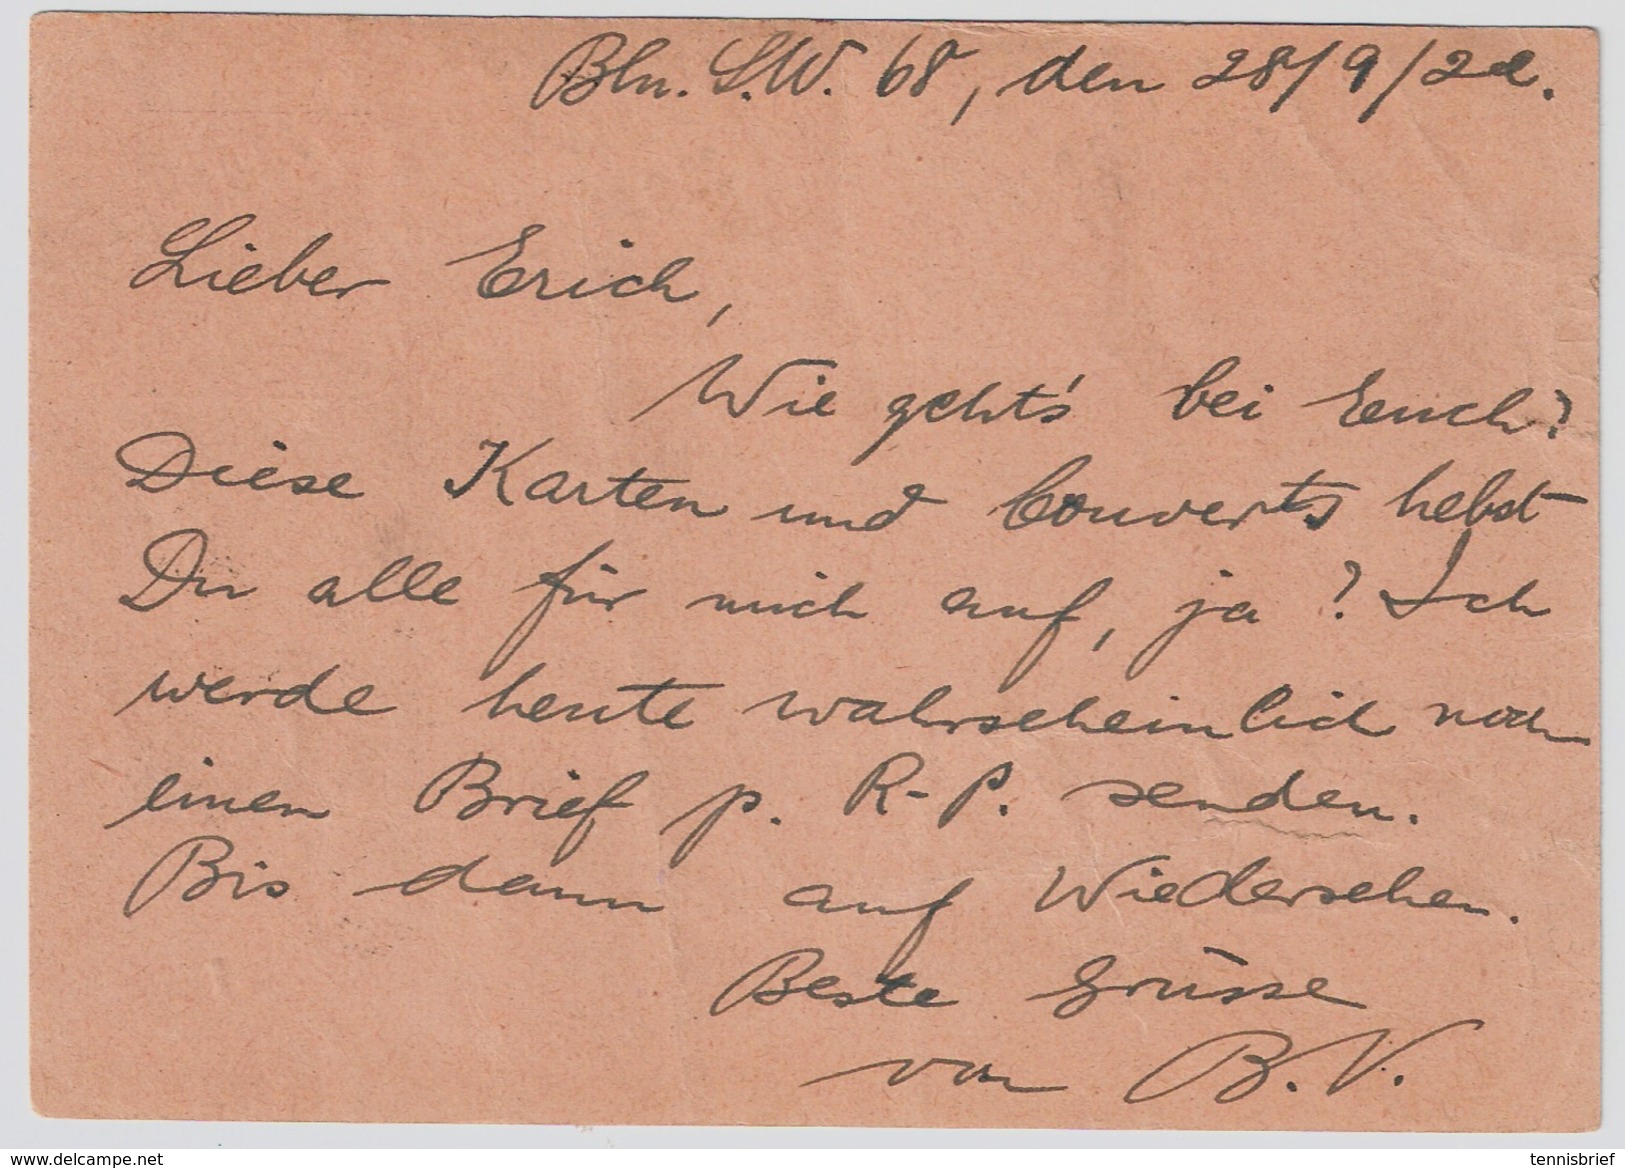 Bln. S.W. 68, den 28/9/22.
Lieber Erich,
Wie geht's bei Euch?
Diese Karten und Couverts hebst
Du alle für mich auf, ja? Ich
werde heute wahrscheinlich noch
einen Brief p. R.-P. senden.
Bis dann auf Wiedersehen.
Beste Grüsse
von B.V.
www.delcampe.net
tennisbrief